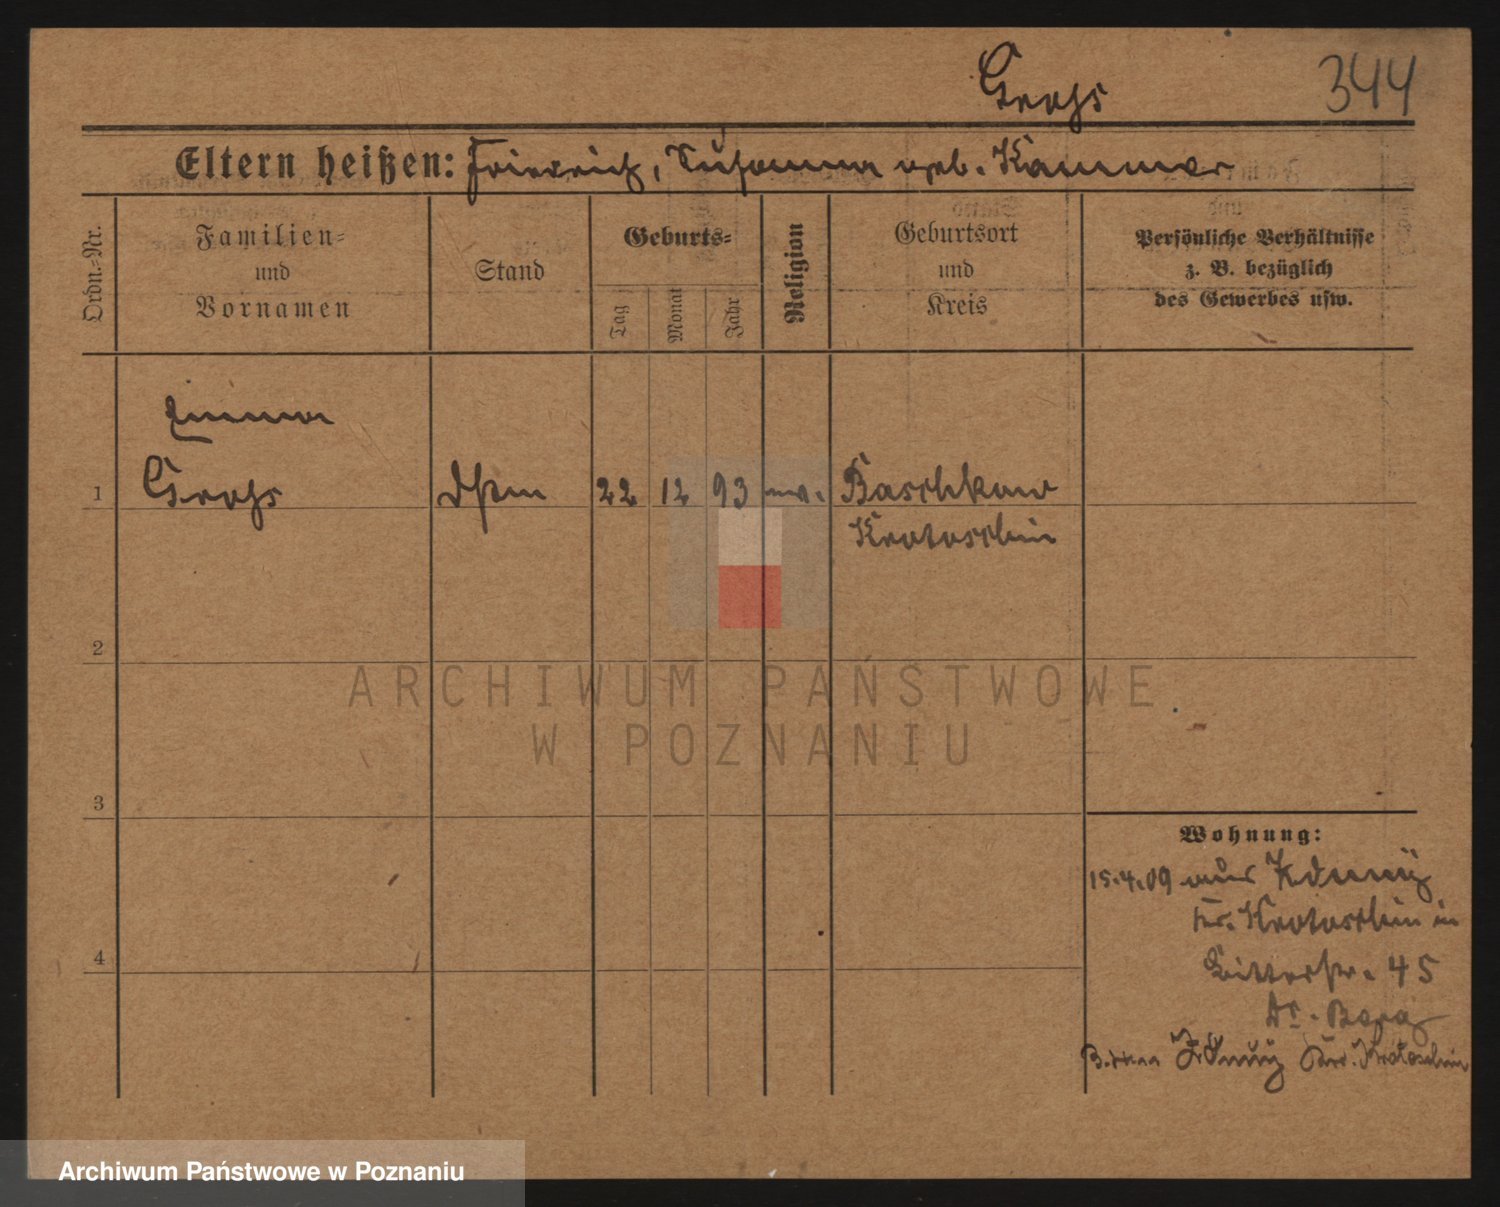 Grohs 344
Eltern heißen: Friedrich, Susanna geb. Kammer
Ordn.-Nr.
Familien-
und
Vornamen
Stand
Geburts-
Tag
Monat
Jahr
Religion
Geburtsort
und
Kreis
Persönliche Verhältnisse
z. B. bezüglich
des Gewerbes usw.
Emma
1 Grohs 22 12 93 ev. Baschkow
Krotoschin
2
3
4
Wohnung:
15.4.09 aus
Kr. Krotoschin in
Ritterstr. 45
Dr.
Krotoschin
ARCHIWUM PAŃSTWOWE
W POZNANIU
Archiwum Państwowe w Poznaniu